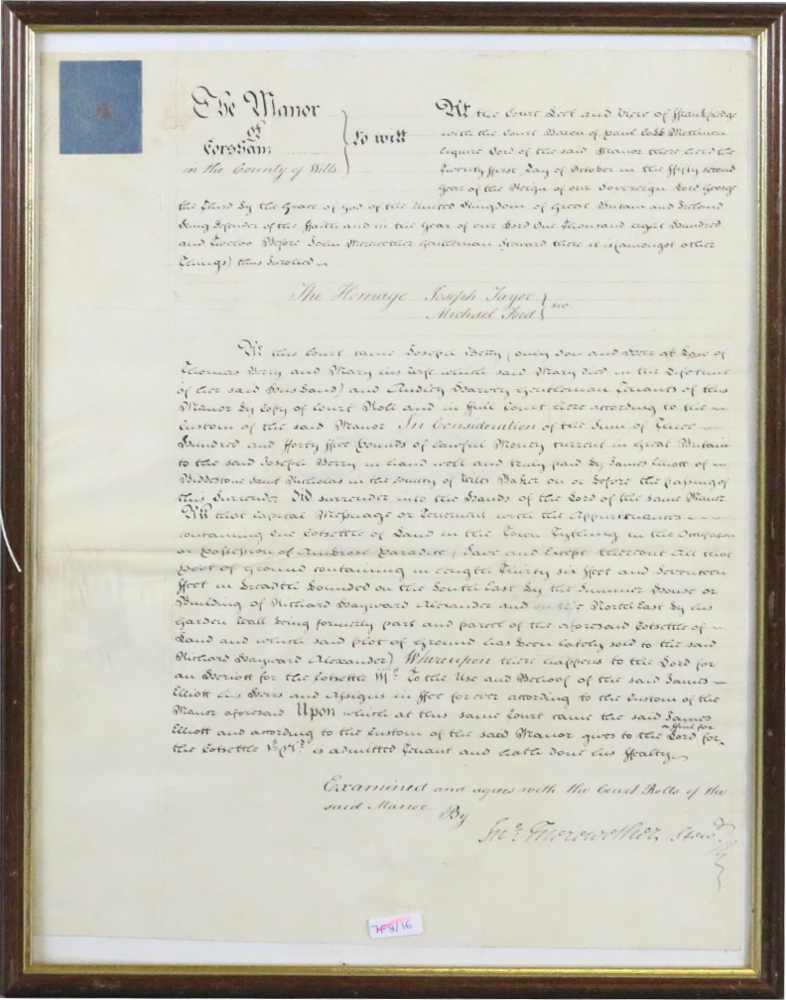 The Manor
of
Corsham
in the County of Wilts
to wit
At the Court Leet and View of Frankpledge
with the Court Baron of Paul Cobb Methuen
Esquire Lord of the said Manor there held the
Twenty first Day of October in the fifty second
Year of the Reign of our Sovereign Lord George
the Third by the Grace of God of the United Kingdom of Great Britain and Ireland
King Defender of the Faith and in the Year of our Lord One Thousand eight Hundred
and Twelve Before John Merewether Gentleman Steward there it is (amongst other
Things) thus Inrolled
The Homage Joseph Tayor
Michael Ford
At this Court came Joseph Berry (only Son and Heir at Law of
Thomas Berry and Mary his Wife which said Mary died in the Lifetime
of her said Husband) and Harvey Gentleman Tenants of this
Manor by Copy of Court Roll and in full Court here according to the
Custom of the said Manor In Consideration of the Sum of Three
Hundred and forty five Pounds of lawful Money current in Great Britain
to the said Joseph Berry in hand well and truly paid by James Elliott of
Biddestone Saint Nicholas in the County of Wilts Baker on or before the passing of
this Surrender Did surrender into the Hands of the Lord of the same Manor
All that Capital Messuage or Tenement with the Appurtenances
containing One Cotsettle of Land in the Town Tything in the Occupation
or Possession of Ambrose Paradice (save and Except thereout All that
plot of Ground containing in length Thirty six feet and Seventeen
feet in breadth bounded on the South East by the Summer House or
Building of Richard Hayward Alexander and on the North East by his
Garden Wall being formerly part and parcel of the aforesaid Cotsettle of
Land and which said plot of Ground has been lately sold to the said
Richard Hayward Alexander) Whereupon there happens to the Lord for
an Herriott for the Cotsettle To the Use and Behoof of the said James
Elliott his Heirs and Assigns in Fee for ever according to the Custom of the
Manor aforesaid Upon which at this same Court came the said James
Elliott and according to the Custom of the said Manor gives to the Lord for
a fine for
the Cotsettle is admitted Tenant and hath done his Fealty
Examined and agrees with the Court Rolls of the
said Manor
By
Jno. Merewether Stewd.